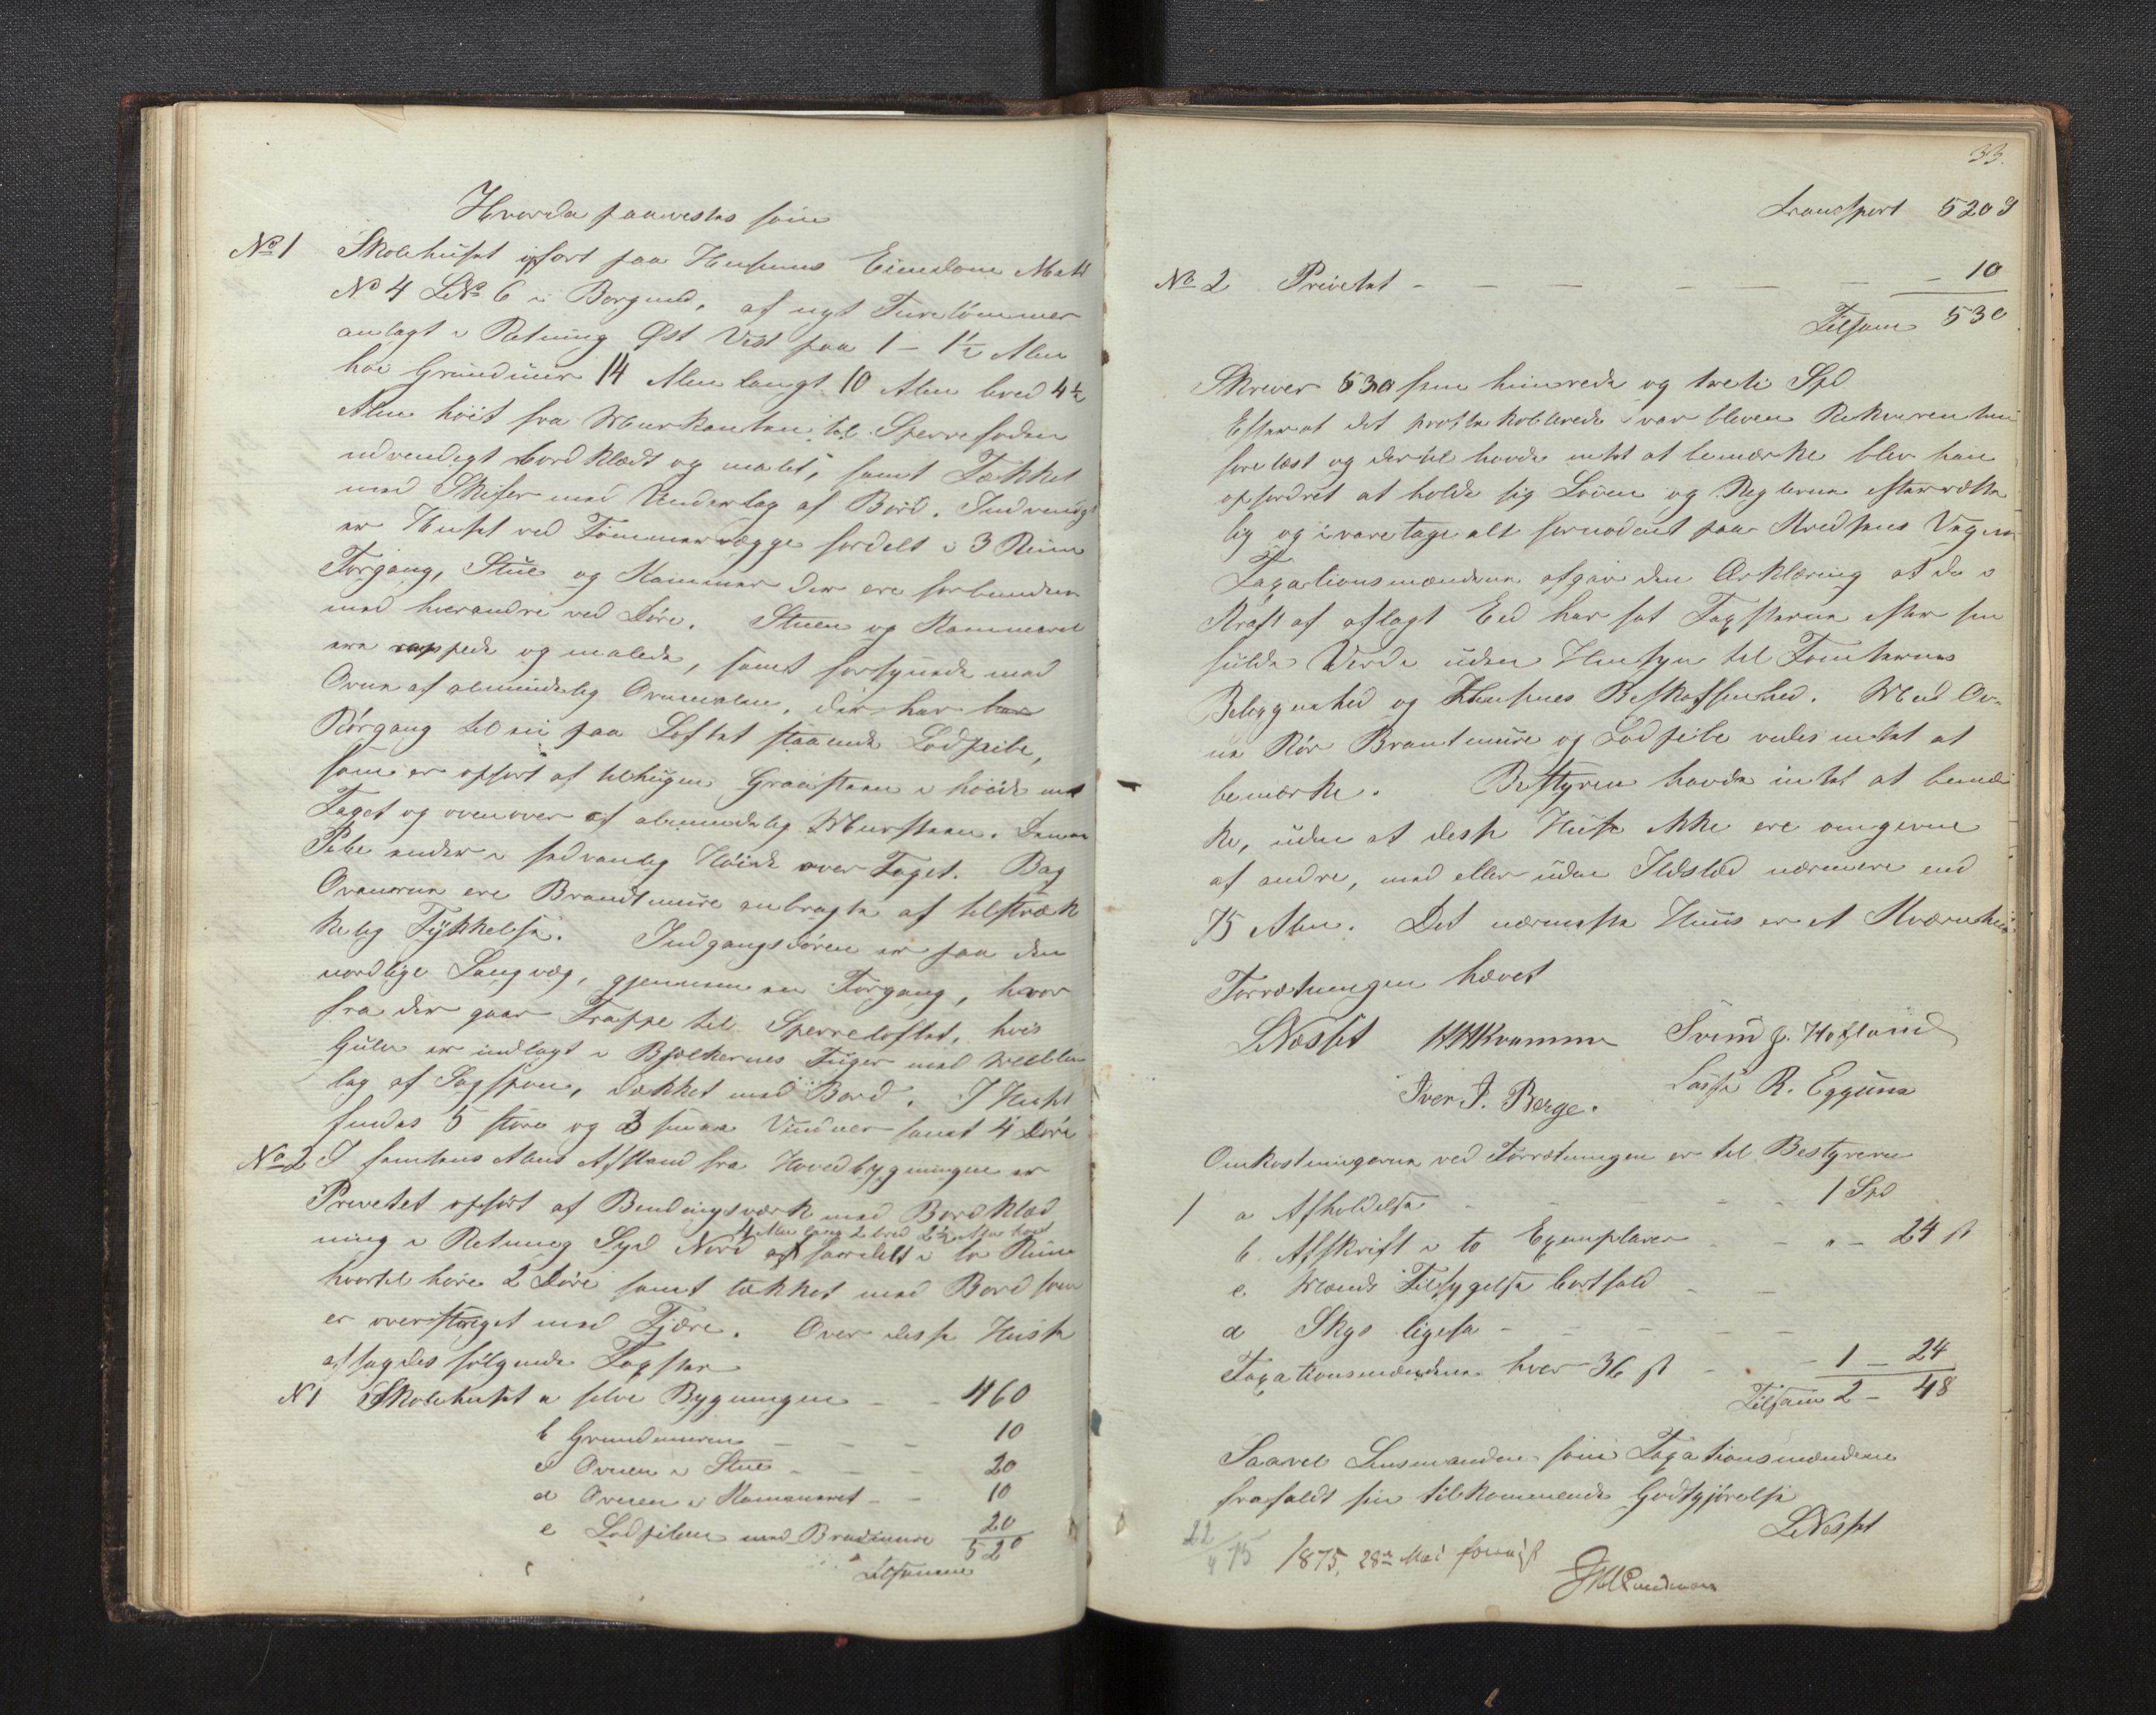 Hvorda paavistes som
No 1 Skolehuset opfört paa Husums Eiendom Matr
No 4 LNo 6 i Borgund, af nyt Furetömmer
anlagt i Retning Øst Vest paa 1 - 1½ Alen
höi Grundmur 14 Alen langt 10 Alen bred 4½
Alen höit fra Murkanten til Sperrefoden
udvendigt bordklædt og malet, samt Tækket
med Skifer med Underlag af Bord. Indvendigt
er Huset ved Tömmervægge fordelt i 3 Rum
Forgang, Stue og Kammer der ere forbundne
med hverandre ved Döre. Stuen og Kammeret
ere rappede og malede, samt forsynede med
Ovne af almindelig Ovnmalm, der har
Rörgang til en paa Loftet staaende Lodpibe,
som er opfört af tilhugne Graasteen i höide med
Taget og ovenover af almindelig Mursteen. Denne
Pibe ender i sædvanlig Höide over Taget. Bag
Ovnerne ere Brandtmure anbragte af tilstræk
kelig Tykkelse. Indgangsdören er paa den
nordlige Langvæg, gjennem en Forgang, hvor
fra der gaar Trappe til Sperreloftet, hvis
Gulv er indlagt i Bjelkernes Fuger med Mellem
lag af Sagspon, dækket med Bord. I Huset
findes 5 store og 3 smaa Vinduer samt 4 Döre
No 2 I femten Alens Afstand fra Hovedbygningen er
Privetet opfört af Bindingsværk med Bordklæd
4 Alen lang 2 bred 2½ Alen höit
ning i Retning Syd Nord fordelt i to Rum
hvortil höre 2 Döre samt tækket med Bord som
er overströget med Tjære. Over disse Huse
afsagdes fölgende Taxster
N 1 Skolehuset a selve Bygningen - - 460
b Grundmuren - - - 10
c Ovnen i Stue - - - 20
d Ovnen i Kammeret - - 10
e Lodpiben med Brandmure 20
Tilsammen 520
33.
Transport 520
No 2 Privetet - - - - - - - 10
Tilsam 530
Skriver 530 fem hundrede og treti Spd
Efterat det protokollerede var bleven Rekvirenten
forelæst og dertil havde intet at bemærke blev han
opfordret at holde sig Loven og Reglerne efterrette
lig og ivaretage alt fornödent paa Kredsens Vegne
Taxationsmændene afgav den Erklæring at de i
Kraft af aflagt Eed har sat Taxsterne efter sin
fulde Verdi uden Hensyn til Tomternes
Beliggenhed og Husenes Beskaffenhed. Med Ov-
ne Rör Brandtmure og Lodpibe vides intet at
bemærke. Bestyren havde intet at bemær
ke, uden at disse Huse ikke ere omgivne
af andre, med eller uden Ildsted nærmere end
75 Alen. Det nærmeste Huus er et Kværnhus
Forretningen hævet
LNesset HHKvamme Svend J. Hofland
Iver J. Berge. Lasse R. Eggum
Omkostningerne ved Forretningen er til Bestyreren
1 a Afholdelse - - - - - 1 Spd
b. Afskrift i to Exemplarer - - " - 24 ß
c. Mænds Tilsigelse bortfald - -
d Skyds ligesa - - - - -
Taxationsmændene hver 36 ß - - 1 - 24
Tilsam 2 - 48
Saavel Lensmanden som Taxationsmændene
frafaldt sin tilkommende Godtgjörelse
LNesset
22/4 75 1875, 28de Mai